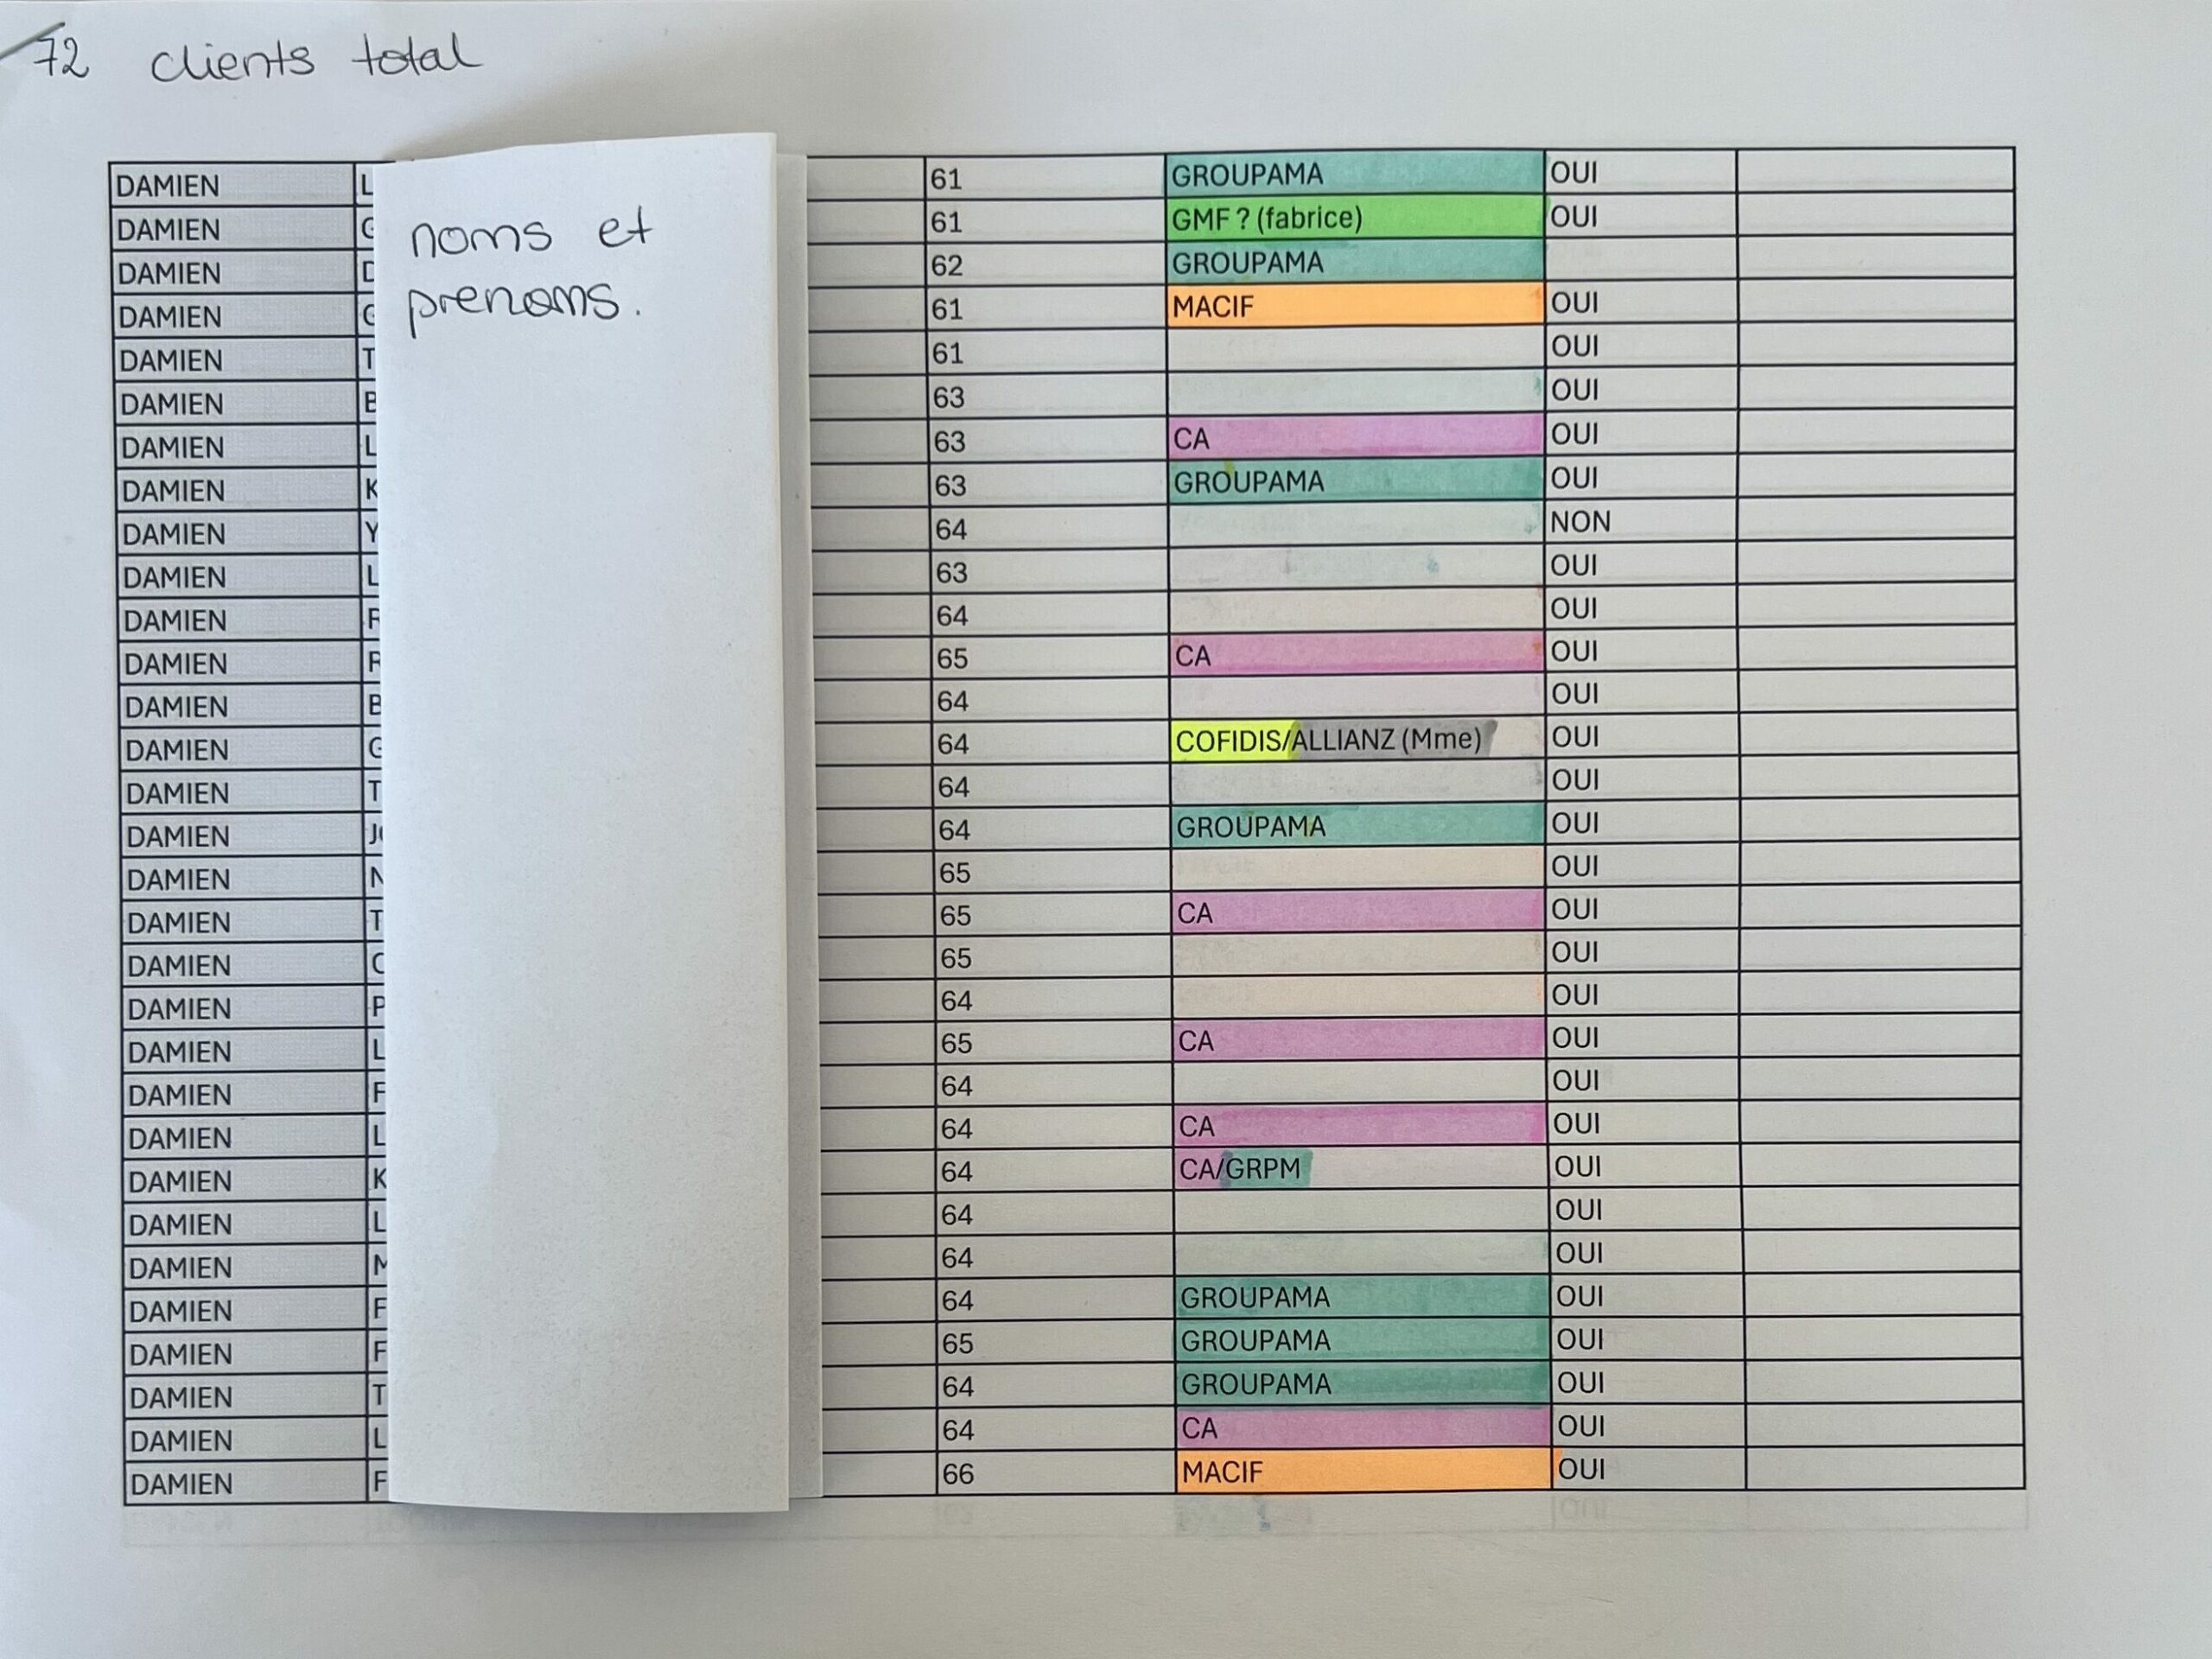 72 clients total
noms et
prenoms.
DAMIEN L 61 GROUPAMA OUI
DAMIEN G 61 GMF ? (fabrice) OUI
DAMIEN D 62 GROUPAMA
DAMIEN G 61 MACIF OUI
DAMIEN T 61 OUI
DAMIEN B 63 OUI
DAMIEN L 63 CA OUI
DAMIEN K 63 GROUPAMA OUI
DAMIEN Y 64 NON
DAMIEN L 63 OUI
DAMIEN 64 OUI
DAMIEN 65 CA OUI
DAMIEN B 64 OUI
DAMIEN G 64 COFIDIS/ALLIANZ (Mme) OUI
DAMIEN T 64 OUI
DAMIEN J 64 GROUPAMA OUI
DAMIEN N 65 OUI
DAMIEN T 65 CA OUI
DAMIEN 65 OUI
DAMIEN P 64 OUI
DAMIEN L 65 CA OUI
DAMIEN F 64 OUI
DAMIEN L 64 CA OUI
DAMIEN K 64 CA/GRPM OUI
DAMIEN L 64 OUI
DAMIEN M 64 OUI
DAMIEN F 64 GROUPAMA OUI
DAMIEN F 65 GROUPAMA OUI
DAMIEN T 64 GROUPAMA OUI
DAMIEN L 64 CA OUI
DAMIEN F 66 MACIF OUI